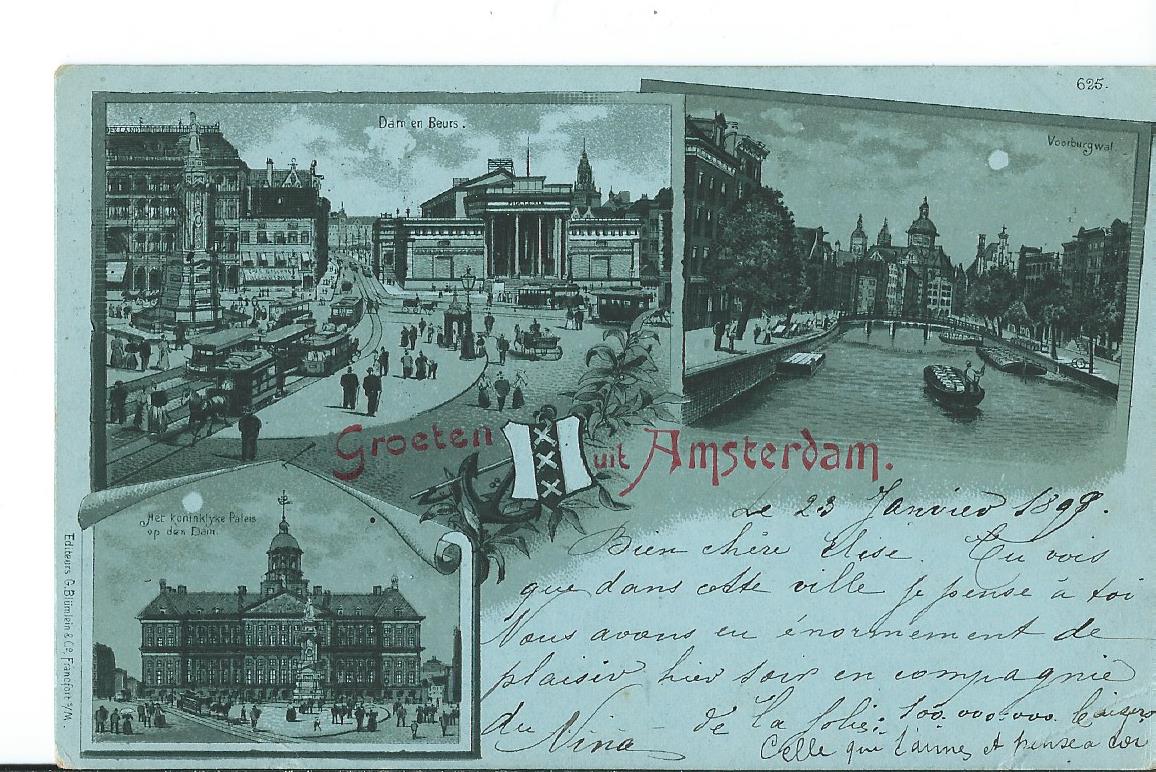 625.
Dam en Beurs.
Voorburgwal.
Groeten uit Amsterdam.
Het koninklyke Paleis
op den Dam.
Editeurs G. Blümlein & Co., Francfort a/M.
Le 23 Janvier 1898.
Bien chère Elise. Tu vois
que dans cette ville je pense à toi
Nous avons eu énormement de
plaisir hier soir en compagnie
du Nina - de la folie: 100.000.000. baisers
Celle qui t'aime et pense à toi